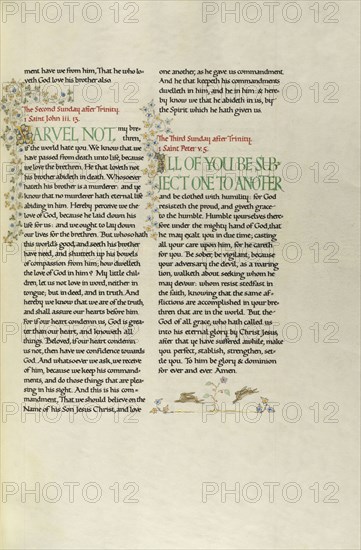 ment have we from him, That he who lo-
veth God love his brother also.
The Second Sunday after Trinity.
1 Saint John iii. 13.
MARVEL NOT, my bre-
thren,
if the world hate you. We know that we
have passed from death unto life, because
we love the brethren. He that loveth not
his brother abideth in death. Whosoever
hateth his brother is a murderer: and ye
know that no murderer hath eternal life
abiding in him. Hereby perceive we the
love of God, because he laid down his
life for us: and we ought to lay down
our lives for the brethren. But whoso hath
this world's good, and seeth his brother
have need, and shutteth up his bowels
of compassion from him, how dwelleth
the love of God in him? My little chil-
dren, let us not love in word, neither in
tongue; but in deed, and in truth. And
hereby we know that we are of the truth,
and shall assure our hearts before him.
For if our heart condemn us, God is grea-
ter than our heart, and knoweth all
things. Beloved, if our heart condemn
us not, then have we confidence towards
God. And whatsoever we ask, we receive
of him, because we keep his command-
ments, and do those things that are plea-
sing in his sight. And this is his com-
mandment, That we should believe on the
Name of his Son Jesus Christ, and love
one another, as he gave us commandment.
And he that keepeth his commandments
dwelleth in him, and he in him: & here-
by we know that he abideth in us, by
the Spirit which he hath given us.
The Third Sunday after Trinity.
1 Saint Peter v. 5.
ALL OF YOU BE SUB-
JECT ONE TO ANOTHER
and be clothed with humility: for God
resisteth the proud, and giveth grace
to the humble. Humble yourselves there-
fore under the mighty hand of God, that
he may exalt you in due time; casting
all your care upon him, for he careth
for you. Be sober, be vigilant; because
your adversary the devil, as a roaring
lion, walketh about seeking whom he
may devour: whom resist stedfast in
the faith, knowing that the same af-
flictions are accomplished in your bre-
thren that are in the world. But the
God of all grace, who hath called us
into his eternal glory by Christ Jesus,
after that ye have suffered awhile, make
you perfect, stablish, strengthen, set-
tle you. To him be glory & dominion
for ever and ever. Amen.
PHOTO 12